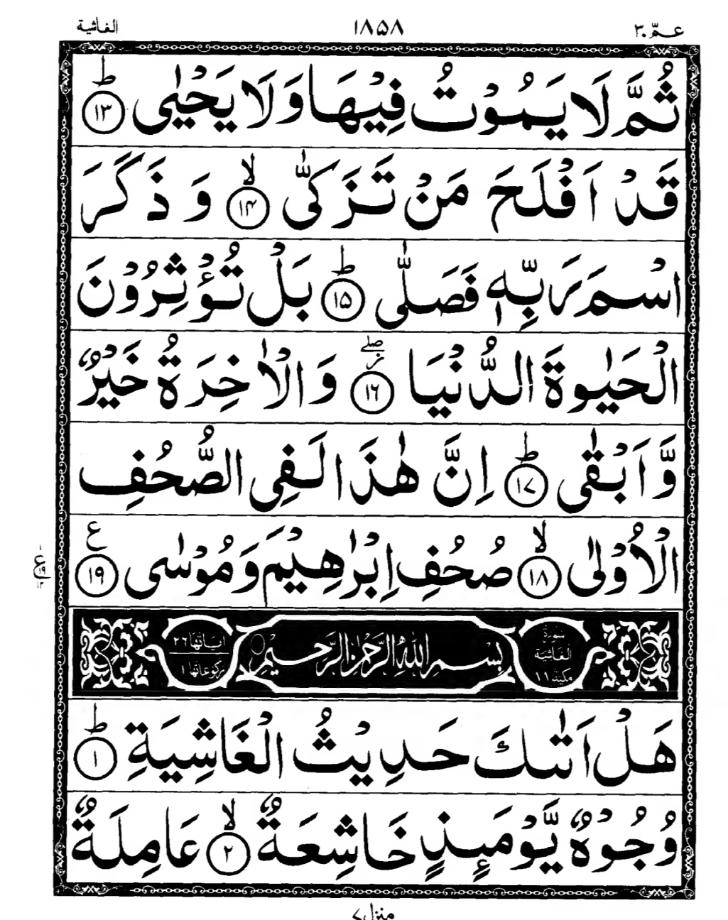 عمّ ۳۰ ۱۸۵۸ الغاشية
ثُمَّ لَا يَمُوْتُ فِيْهَا وَلَا يَحْيٰى ؕ ﴿۱۳﴾
قَدْ اَفْلَحَ مَنْ تَزَكّٰى ۙ ﴿۱۴﴾ وَ ذَكَرَ
اسْمَ رَبِّهٖ فَصَلّٰى ؕ ﴿۱۵﴾ بَلْ تُؤْثِرُوْنَ
الْحَيٰوةَ الدُّنْيَا ۖ ﴿۱۶﴾ وَالْاٰخِرَةُ خَيْرٌ
وَّاَبْقٰى ؕ ﴿۱۷﴾ اِنَّ هٰذَا لَفِى الصُّحُفِ
الْاُوْلٰى ۙ ﴿۱۸﴾ صُحُفِ اِبْرٰهِيْمَ وَمُوْسٰى ﴿۱۹﴾ ع
سورة الغاشية مكية ۱۱ بِسْمِ اللهِ الرَّحْمٰنِ الرَّحِيْمِ اٰياتها ۲۶ ركوعاتها ۱
هَلْ اَتٰىكَ حَدِيْثُ الْغَاشِيَةِ ؕ ﴿۱﴾
وُجُوْهٌ يَّوْمَئِذٍ خَاشِعَةٌ ۙ ﴿۲﴾ عَامِلَةٌ
منزل ۷